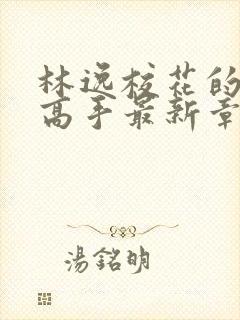 林逸校花的
高手最新章
湯銘明